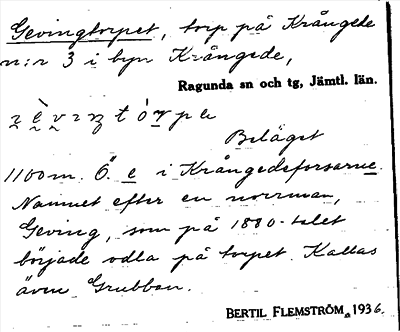 Gevingtorpet, torp på Krångede
n:r 3 i byn Krångede,
Ragunda sn och tg, Jämtl. län.
Beläget
1100 m. Ö. e i Krångedeforsarne.
Namnet efter en norrman,
Geving, som på 1880-talet
började odla på torpet. Kallas
även Grubban.
BERTIL FLEMSTRÖM, 1936.